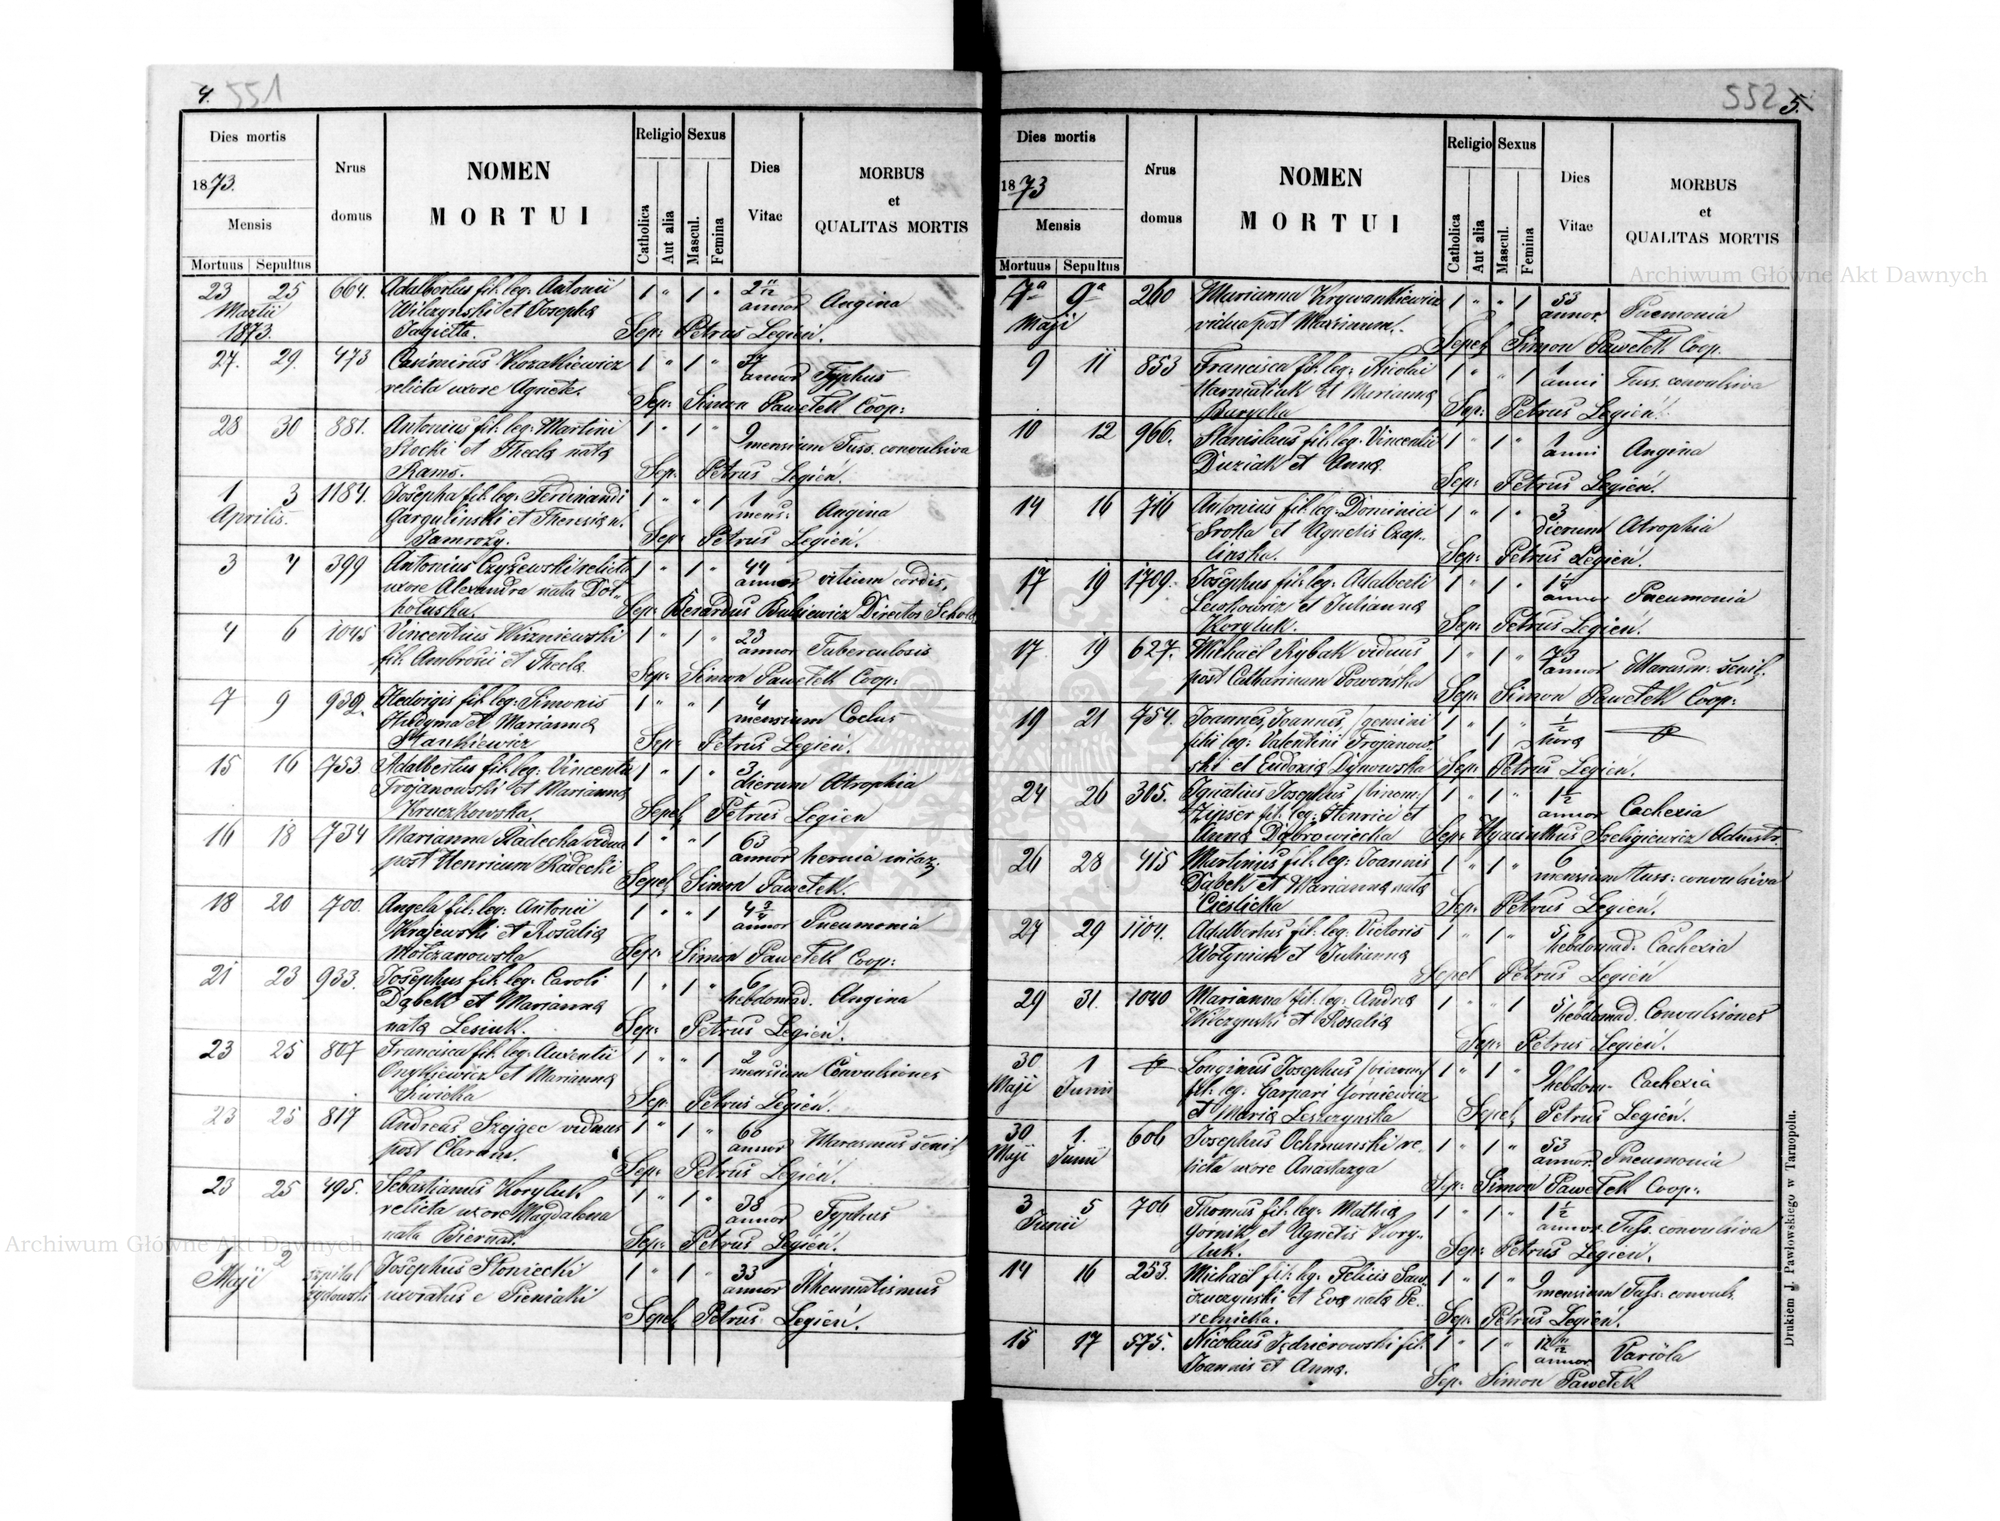 4. 551
Dies mortis
1873.
Mensis
Mortuus Sepultus
Nrus domus
NOMEN
MORTUI
Religio
Catholica
Aut alia
Sexus
Mascul.
Femina
Dies
Vitae
MORBUS
et
QUALITAS MORTIS
23 25 664. Adalbertus fil: leg: Antonii 1 " 1 " 2 11/12
Martii Wilczynski et Josepha annor Angina
1873. Jagiełła. Sep: Petrus Legień.
27. 29. 473 Casimirus Kozakiewicz 1 " 1 " 37
relicta uxore Agnete. annor Typhus
Sep: Simon Pawełek Coop:
28 30 881. Antonius fil: leg: Martini 1 " 1 " 9
Stocki et Thecla nata mensium Tuss. convulsiva
Rams. Sep: Petrus Legień.
1 3 1184. Josepha fil: leg: Ferdinandi 1 " " 1 1
Aprilis. Gargulinski et Theresia n. mens: Angina
Jamrozy. Sep: Petrus Legień.
3 4 399 Antonius Czyżewski relicta 1 " 1 " 44
uxore Alexandra nata Doł- annor vitium cordis,
hołuska. Sep: Berardus Bulsiewicz Director Schola
4 6 1045 Vincentius Wiszniewski 1 " 1 " 23
fil: Ambrosii et Thecla annor Tuberculosis
Sep: Simon Pawełek Coop:
7 9 932. Hedvigis fil: leg: Simonis 1 " " 1 4
et Marianna mensium
Stankiewicz Sep: Petrus Legień.
15 16 753. Adalbertus fil: leg: Vincentii 1 " 1 " 3
Trojanowski et Marianna dierum Atrophia
Kruczkowska. Sepel Petrus Legien
16 18 734 Marianna Radecka vidua 1 " " 1 63
post Henricum Radecki annor hernia incar:
Sepel Simon Pawełek.
18 20 700. Angela fil: leg: Antonii 1 " " 1 4 3/4
Krajewski et Rosalia annor Pneumonia
Mołczanowska Sep: Simon Pawełek Coop:
21 23 933. Josephus fil: leg: Caroli 1 " 1 " 6
Dąbek et Marianna hebdomad. Angina
nata Lesiuk. Sep: Petrus Legień.
23 25 807 Francisca fil: leg: Auxentii 1 " " 1 2
Onyszkiewicz et Marianna mensium Convulsiones
Siwicka Sep: Petrus Legień.
23 25 817 Andreas Szejgec viduus 1 " 1 " 60
post Claram. annor Marasmus senil
Sep: Petrus Legień.
23 25 495. Sebastianus Koryluk 1 " 1 " 38
relicta uxore Magdalena annor Typhus
nata Biernat. Sep: Petrus Legień.
1 2 Szpital Josephus Słoniecki 1 " 1 " 33
Maji żydowski uxoratus e Pieniaki annor Rheumatismus
Sepel Petrus Legień.
552 5.
Dies mortis
1873
Mensis
Mortuus Sepultus
Nrus domus
NOMEN
MORTUI
Religio
Catholica
Aut alia
Sexus
Mascul.
Femina
Dies
Vitae
MORBUS
et
QUALITAS MORTIS
7a 9a 260 Marianna Krzywankiewicz 1 " " 1 53
Maji vidua post Marianum. annor. Pneumonia
Sepel Simon Pawełek Coop.
9 11 853 Francisca fil: leg: Nicolai 1 " " 1 1
Harmatiuk et Marianna anni Tuss. convulsiva
Burycka Sep: Petrus Legień.
10 12 966. Stanislaus fil: leg: Vincentii 1 " 1 " 1
Duziak et Anna anni Angina
Sep: Petrus Legień.
14 16 746 Antonius fil: leg: Dominici 1 " 1 " 3
Sroka et Agnetis Czap- dierum Atrophia
linska. Sep: Petrus Legień.
17 19 1709. Josephus fil: leg: Adalberti 1 " 1 "
Lewkowicz et Julianna annor Pneumonia
Koryluk. Sep: Petrus Legień.
17 19 627. Michael Rybak viduus 1 " 1 " 73
post Catharinam Powońska annor Marasm: senil.
Sep: Simon Pawełek Coop:
19 21 754. Joannes, Joannes, /gemini 1 " 1 " 1/2
filii leg: Valentini Trojanow- 1 hora
ski et Eudoxia Dynowska Sep: Petrus Legień.
24 26 305. Ignatius Josephus /binom:/ 1 " 1 " 1 1/2
Zipser fil: leg: Henrici et annor Cachexia
Anna Dąbrowiecka Sep: Hyacinthus Szeligiewicz Admstr.
26 28 415 Martinus fil: leg: Joannis 1 " 1 " 6
Dąbek et Marianna nata mensium Tuss: convulsiva
Cieslicka Sep: Petrus Legień.
27 29 1104. Adalbertus fil: leg: Victoris 1 " 1 " 5
Wołyniuk et Julianna hebdomad. Cachexia
Sepel Petrus Legień
29 31. 1040 Marianna fil: leg: Andrea 1 " " 1 5
Wilczynski et Rosalia hebdomad. Convulsiones
Sep: Petrus Legień.
30 1 Longinus Josephus /binom:/ 1 " 1 " 9
Maji Junii fil: leg: Gaspari Górniewicz hebdom- Cachexia
et Maria Leszczynska Sepel Petrus Legień.
30 1. 606 Josephus Ochmanski re- 1 " 1 " 53
Maji Junii licta uxore Anastazya annor. Pneumonia
Sep: Simon Pawełek Coop:
3 5 706 Thomas fil: leg: Mathia 1 " 1 " 1 1/2
Junii Górnik et Agnetis Kory- annor. Tuss. convulsiva
luk. Sep: Petrus Legień.
14 16 253. Michaël fil: leg: Felicis Saw- 1 " 1 " 9
czuczynski et Eva nata Pe- mensium Tuss. convuls.
retnicka. Sep: Petrus Legień.
15 17 575. Nicolaus Jędrzerowski fil: 1 " 1 " 12 11/12
Joannis et Anna. annor Variola
Sep: Simon Pawełek
Drukiem J. Pawłowskiego w Tarnopolu.
Archiwum Główne Akt Dawnych
Archiwum Główne Akt Dawnych